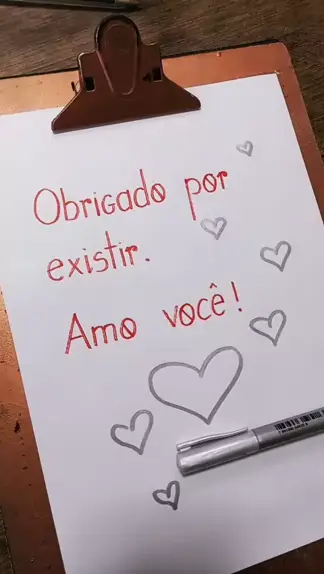 Obrigado por
existir.
Amo você!